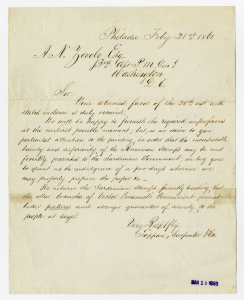 Philada Feby 28th 1861
A. N. Zevely Esq.
3rd Asst P. M. Genl
Washington
D. C.
Sir.
Your esteemed favor of the 26th inst with
stated inclosure is duly received.
We will be happy to furnish the required impressions
at the earliest possible moment, but, as we desire to give
particular attention to the printing, in order that the
beauty and of the American Stamps may be most
forcibly presented to the Sardinian Government, we beg you
to grant us the indulgence of a few days wherein we
may properly prepare the paper &c.
We return the Sardinian Stamps, fondly trusting that
the other branches of Victor Emanuel's Government present
better features and stronger guarantees of security to the
people at large!
Very Respectfully
Toppan, Carpenter &Co.
MAR 1943